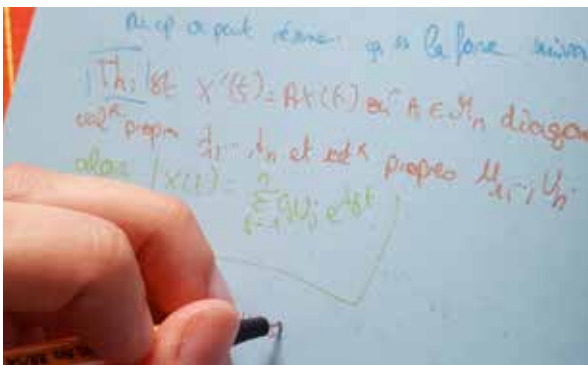 on peut résumer ça ss la forme suivan
Th: Soit X'(t)=AX(t) où A ∈ Mn diagon
val^rs propres λ1, -, λn et vect^rs propres U1, -, Un
alors X(t) = n∑j=1 Cj Uj e^λjt